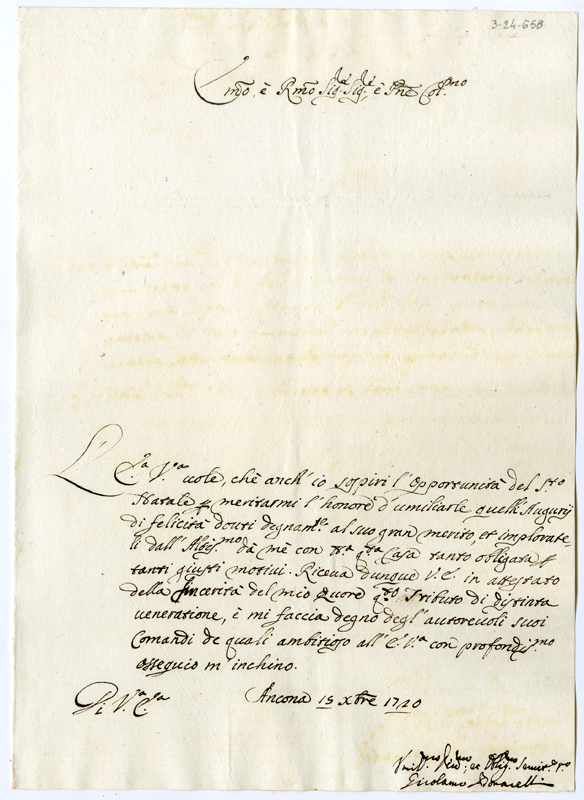 3-24-658
Emo, è Rmo Sig.re Sig.re, è Pne Col.mo
L'E.a V.a vuole, chè anch' io sospiri l'Opportunità del S.to
Natale p meritarmi l'honore d'umiliarle quell'Augurij
di felicità douti degnam.te al suo gran merito, et implorate-
li dall'Altiss.mo dà mè con tta q.ta Casa tanto obligata p
tanti giusti motivi. Riceva dunque V. E. in attestato
della sincerità del mio Quore q.to Tributo di distinta
veneratione, è mi faccia degno degl'autorevoli suoi
Comandi de quali ambitioso all'E. V.a con profondis.mo
ossequio m'inchino.
Di V.a E.a Ancona 15 Xbre 1720
Umil.mo Div.mo, et Oblig.mo Servit.re
Girolamo